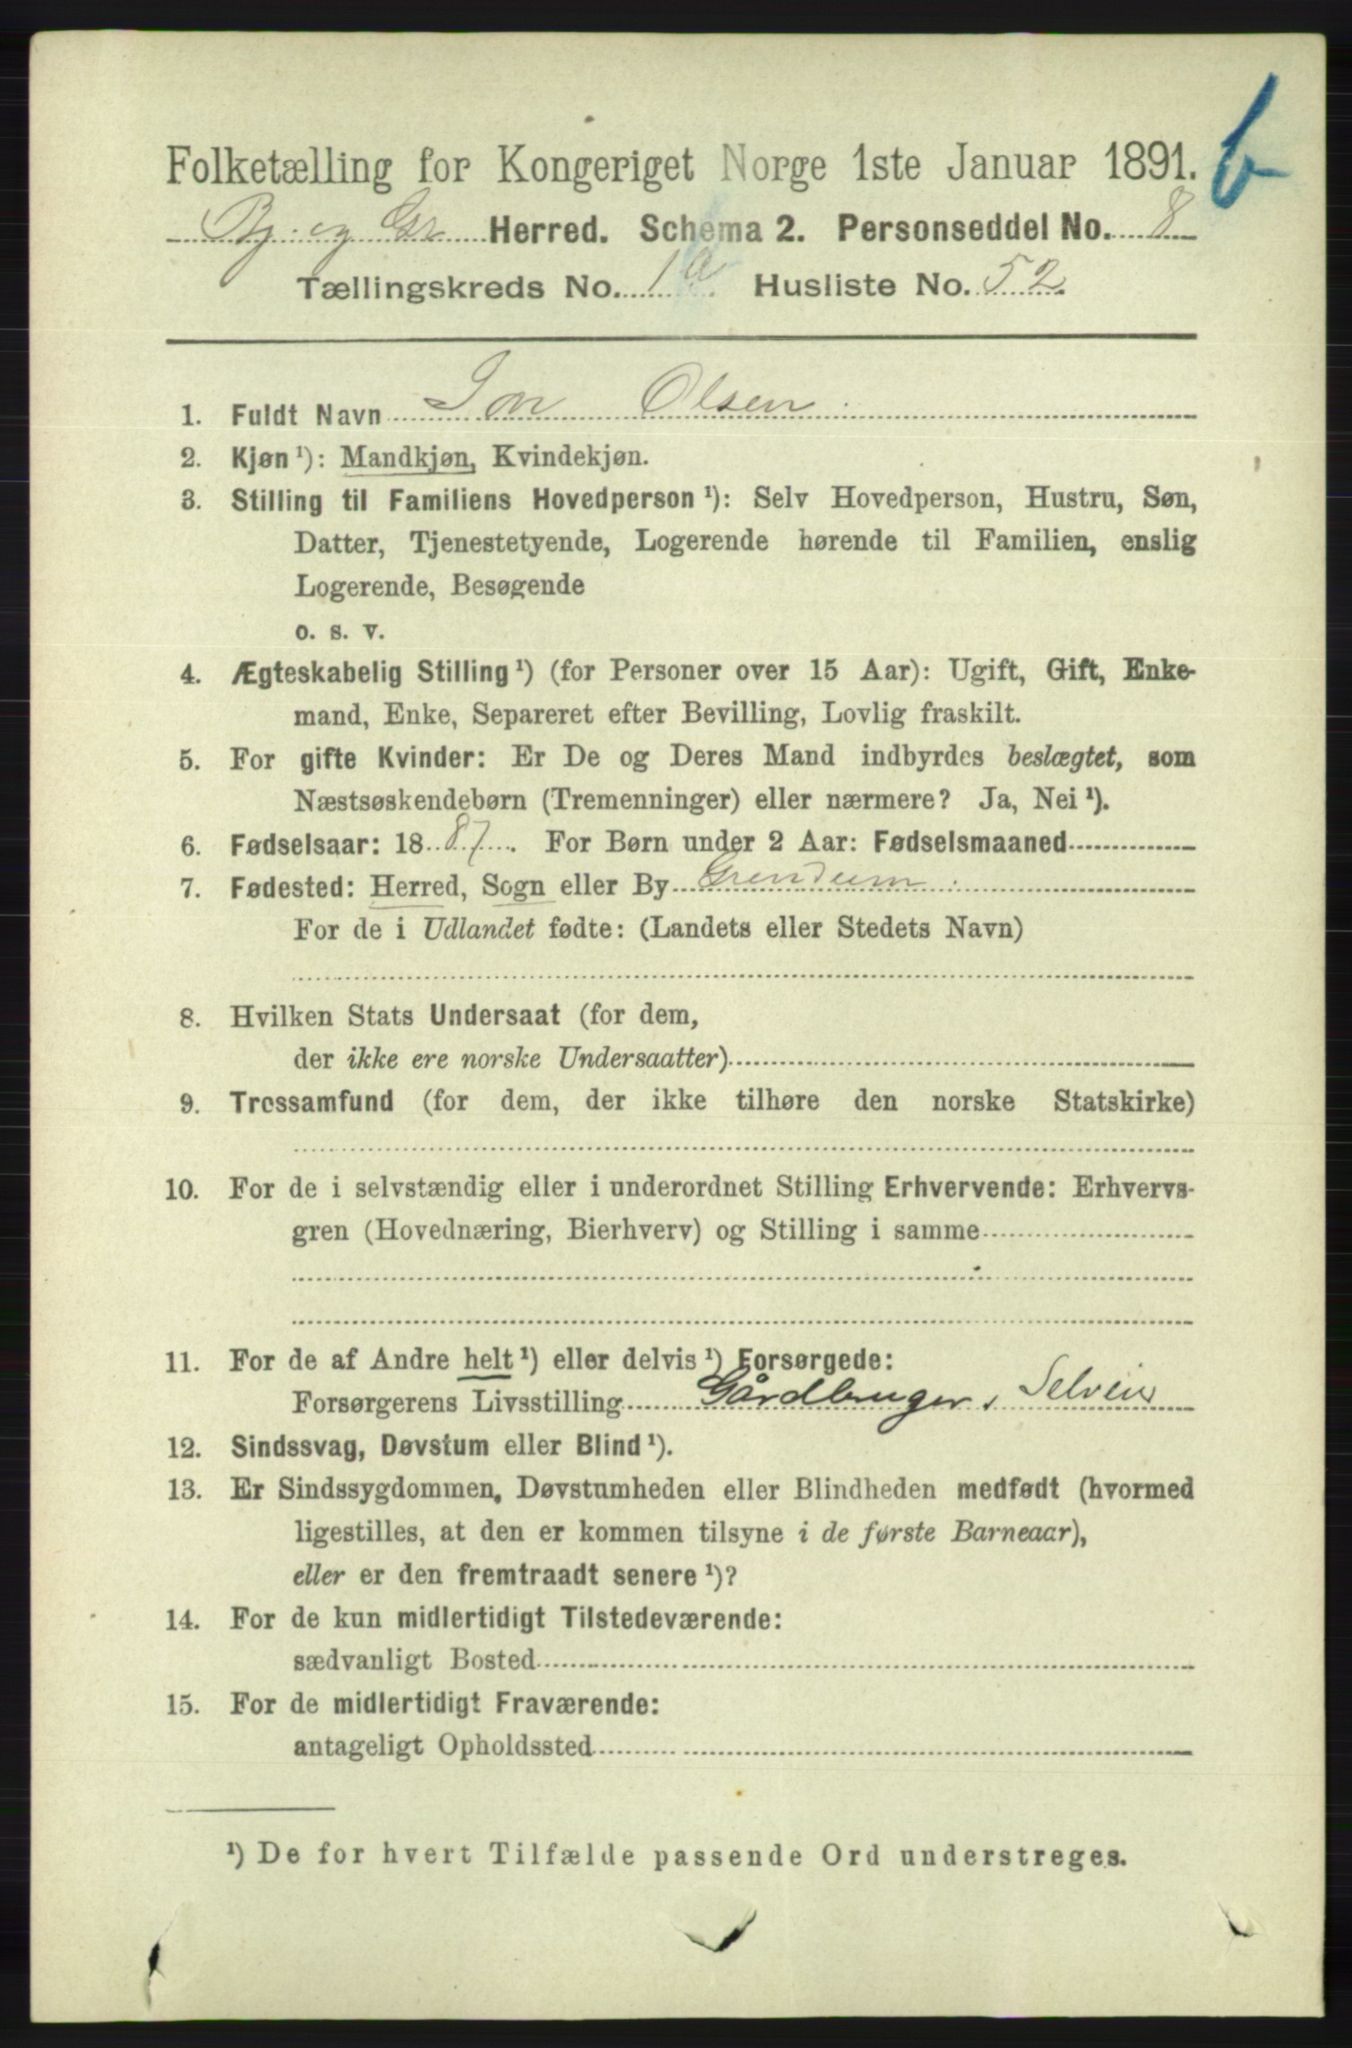 b
Folketælling for Kongeriget Norge 1ste Januar 1891.
Bj. og Gr Herred. Schema 2. Personseddel No. 8
Tællingskreds No. 1a Husliste No. 52
1. Fuldt Navn Olsen
2. Kjøn ¹): Mandkjøn, Kvindekjøn.
3. Stilling til Familiens Hovedperson ¹): Selv Hovedperson, Hustru, Søn,
Datter, Tjenestetyende, Logerende hørende til Familien, enslig
Logerende, Besøgende
o. s. v.
4. Ægteskabelig Stilling ¹) (for Personer over 15 Aar): Ugift, Gift, Enke-
mand, Enke, Separeret efter Bevilling, Lovlig fraskilt.
5. For gifte Kvinder: Er De og Deres Mand indbyrdes beslægtet, som
Næstsøskendebørn (Tremenninger) eller nærmere? Ja, Nei ¹).
6. Fødselsaar: 1887. For Børn under 2 Aar: Fødselsmaaned
7. Fødested: Herred, Sogn eller By Grendum
For de i Udlandet fødte: (Landets eller Stedets Navn)
8. Hvilken Stats Undersaat (for dem,
der ikke ere norske Undersaatter)
9. Trossamfund (for dem, der ikke tilhøre den norske Statskirke)
10. For de i selvstændig eller i underordnet Stilling Erhvervende: Erhvervs-
gren (Hovednæring, Bierhverv) og Stilling i samme
11. For de af Andre helt ¹) eller delvis ¹) Forsørgede:
Forsørgerens Livsstilling Gårdbruger, Selveier
12. Sindssvag, Døvstum eller Blind ¹).
13. Er Sindssygdommen, Døvstumheden eller Blindheden medfødt (hvormed
ligestilles, at den er kommen tilsyne i de første Barneaar),
eller er den fremtraadt senere ¹)?
14. For de kun midlertidigt Tilstedeværende:
sædvanligt Bosted
15. For de midlertidigt Fraværende:
antageligt Opholdssted
¹) De for hvert Tilfælde passende Ord understreges.